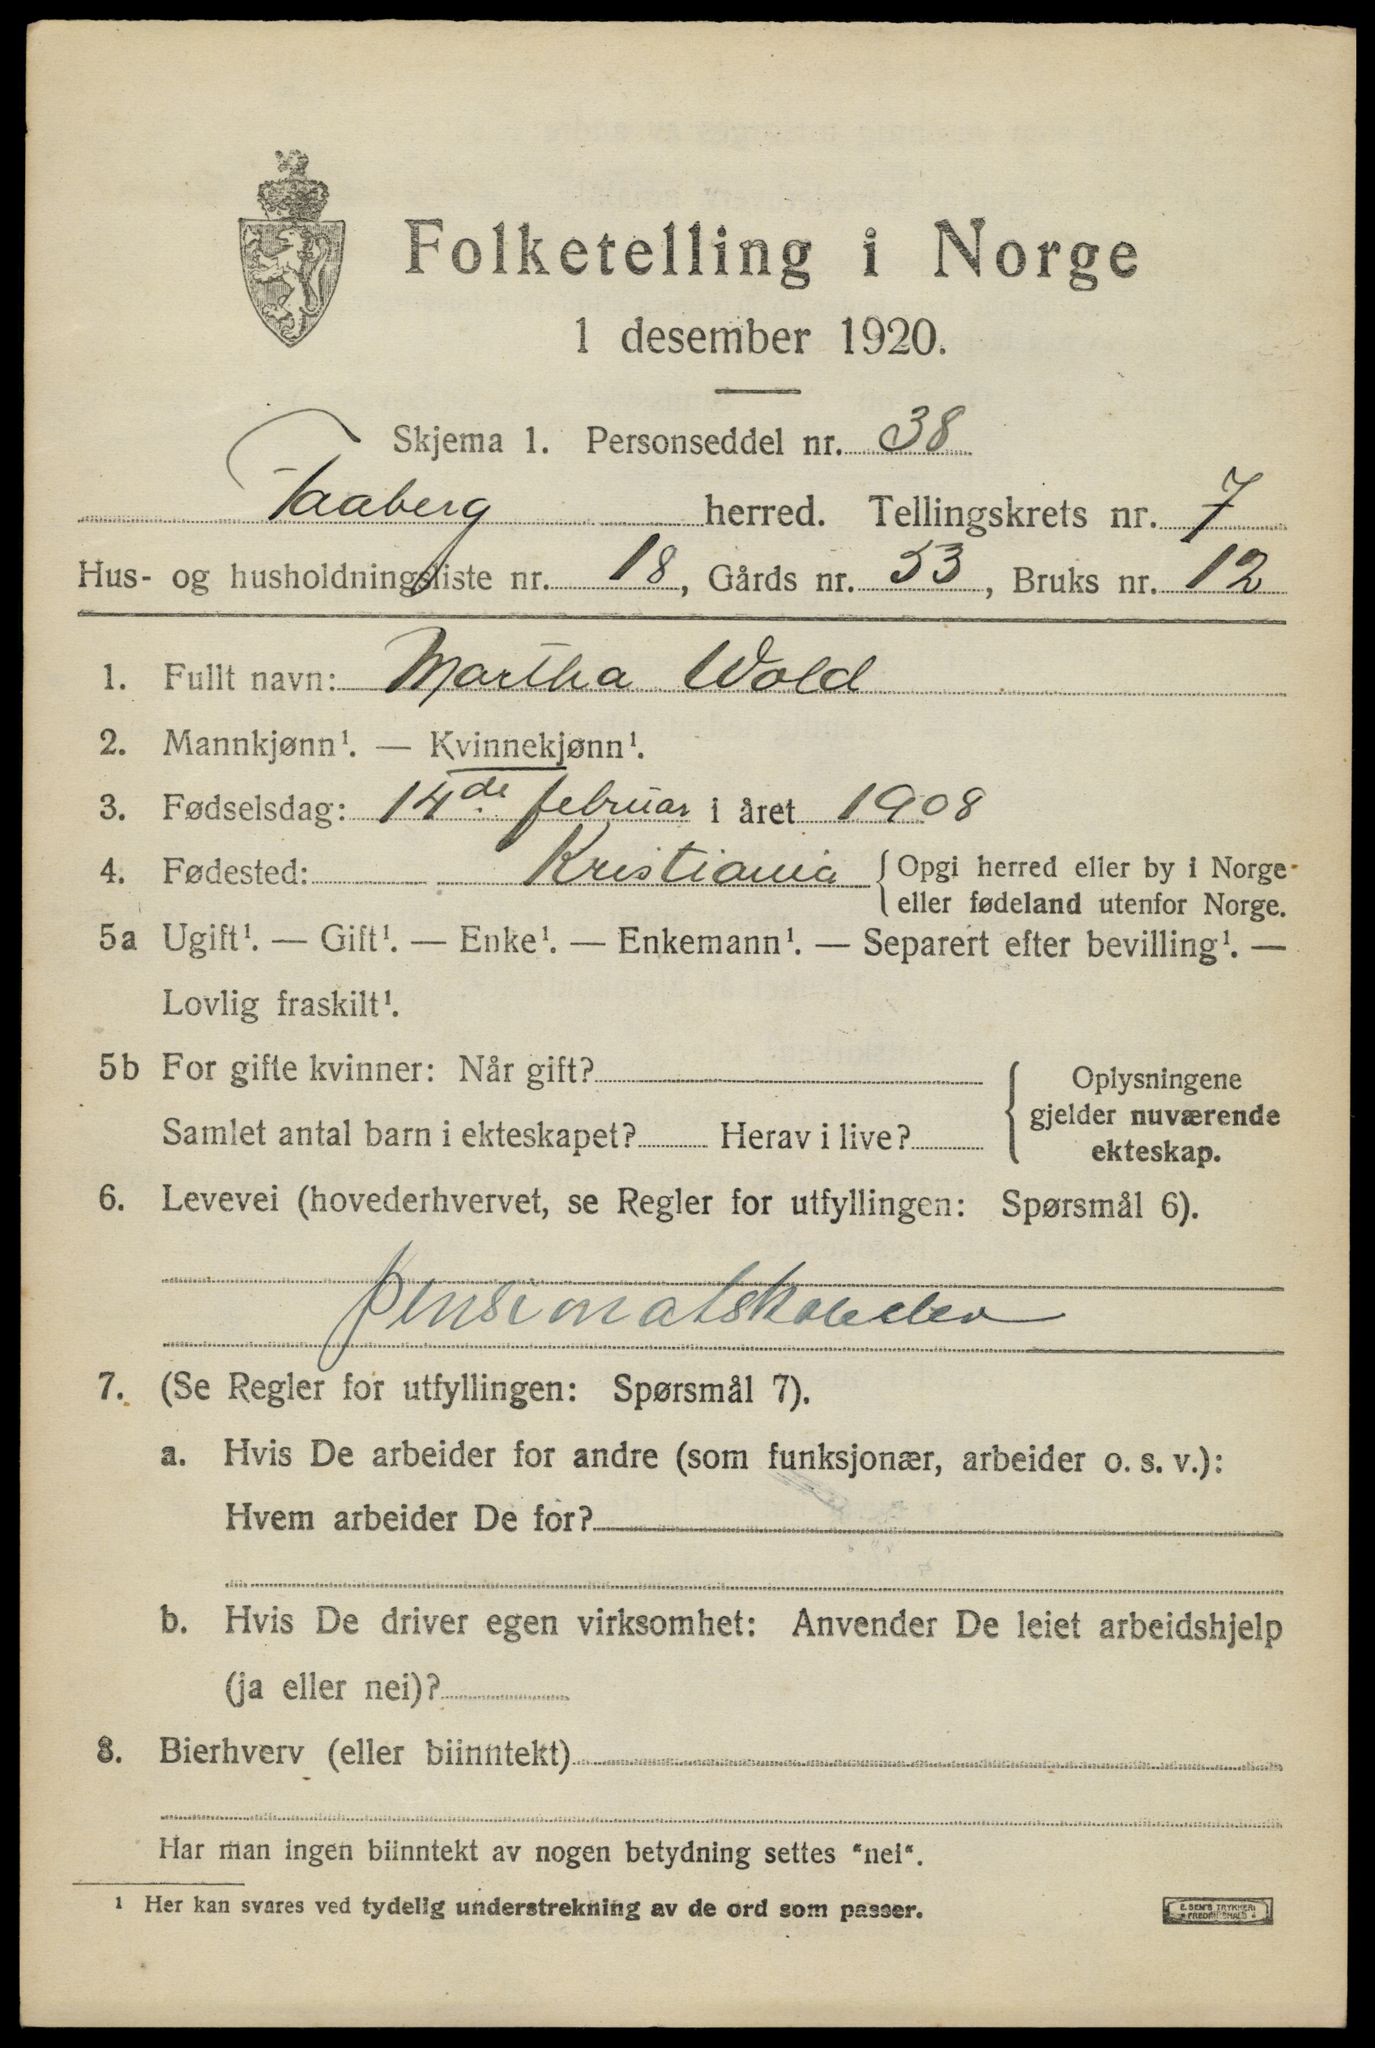 Folketelling i Norge
1 desember 1920.
Skjema 1. Personseddel nr. 38
Faaberg herred. Tellingskrets nr. 7
Hus- og husholdningsliste nr. 18, Gårds nr. 53, Bruks nr. 12
1. Fullt navn: Martha Wold
2. Mannkjønn¹. — Kvinnekjønn¹.
3. Fødselsdag: 14de februar i året 1908
4. Fødested: Kristiania { Opgi herred eller by i Norge
eller fødeland utenfor Norge.
5a Ugift¹. — Gift¹. — Enke¹. — Enkemann¹. — Separert efter bevilling¹. —
Lovlig fraskilt¹.
5b For gifte kvinner: Når gift?
Samlet antal barn i ekteskapet? Herav i live?
Oplysningene
gjelder nuværende
ekteskap.
6. Levevei (hovederhvervet, se Regler for utfyllingen: Spørsmål 6).
7. (Se Regler for utfyllingen: Spørsmål 7).
a. Hvis De arbeider for andre (som funksjonær, arbeider o. s. v.):
Hvem arbeider De for?
b. Hvis De driver egen virksomhet: Anvender De leiet arbeidshjelp
(ja eller nei)?
8. Bierhverv (eller biinntekt)
Har man ingen biinntekt av nogen betydning settes "nei".
¹ Her kan svares ved tydelig understrekning av de ord som passer.